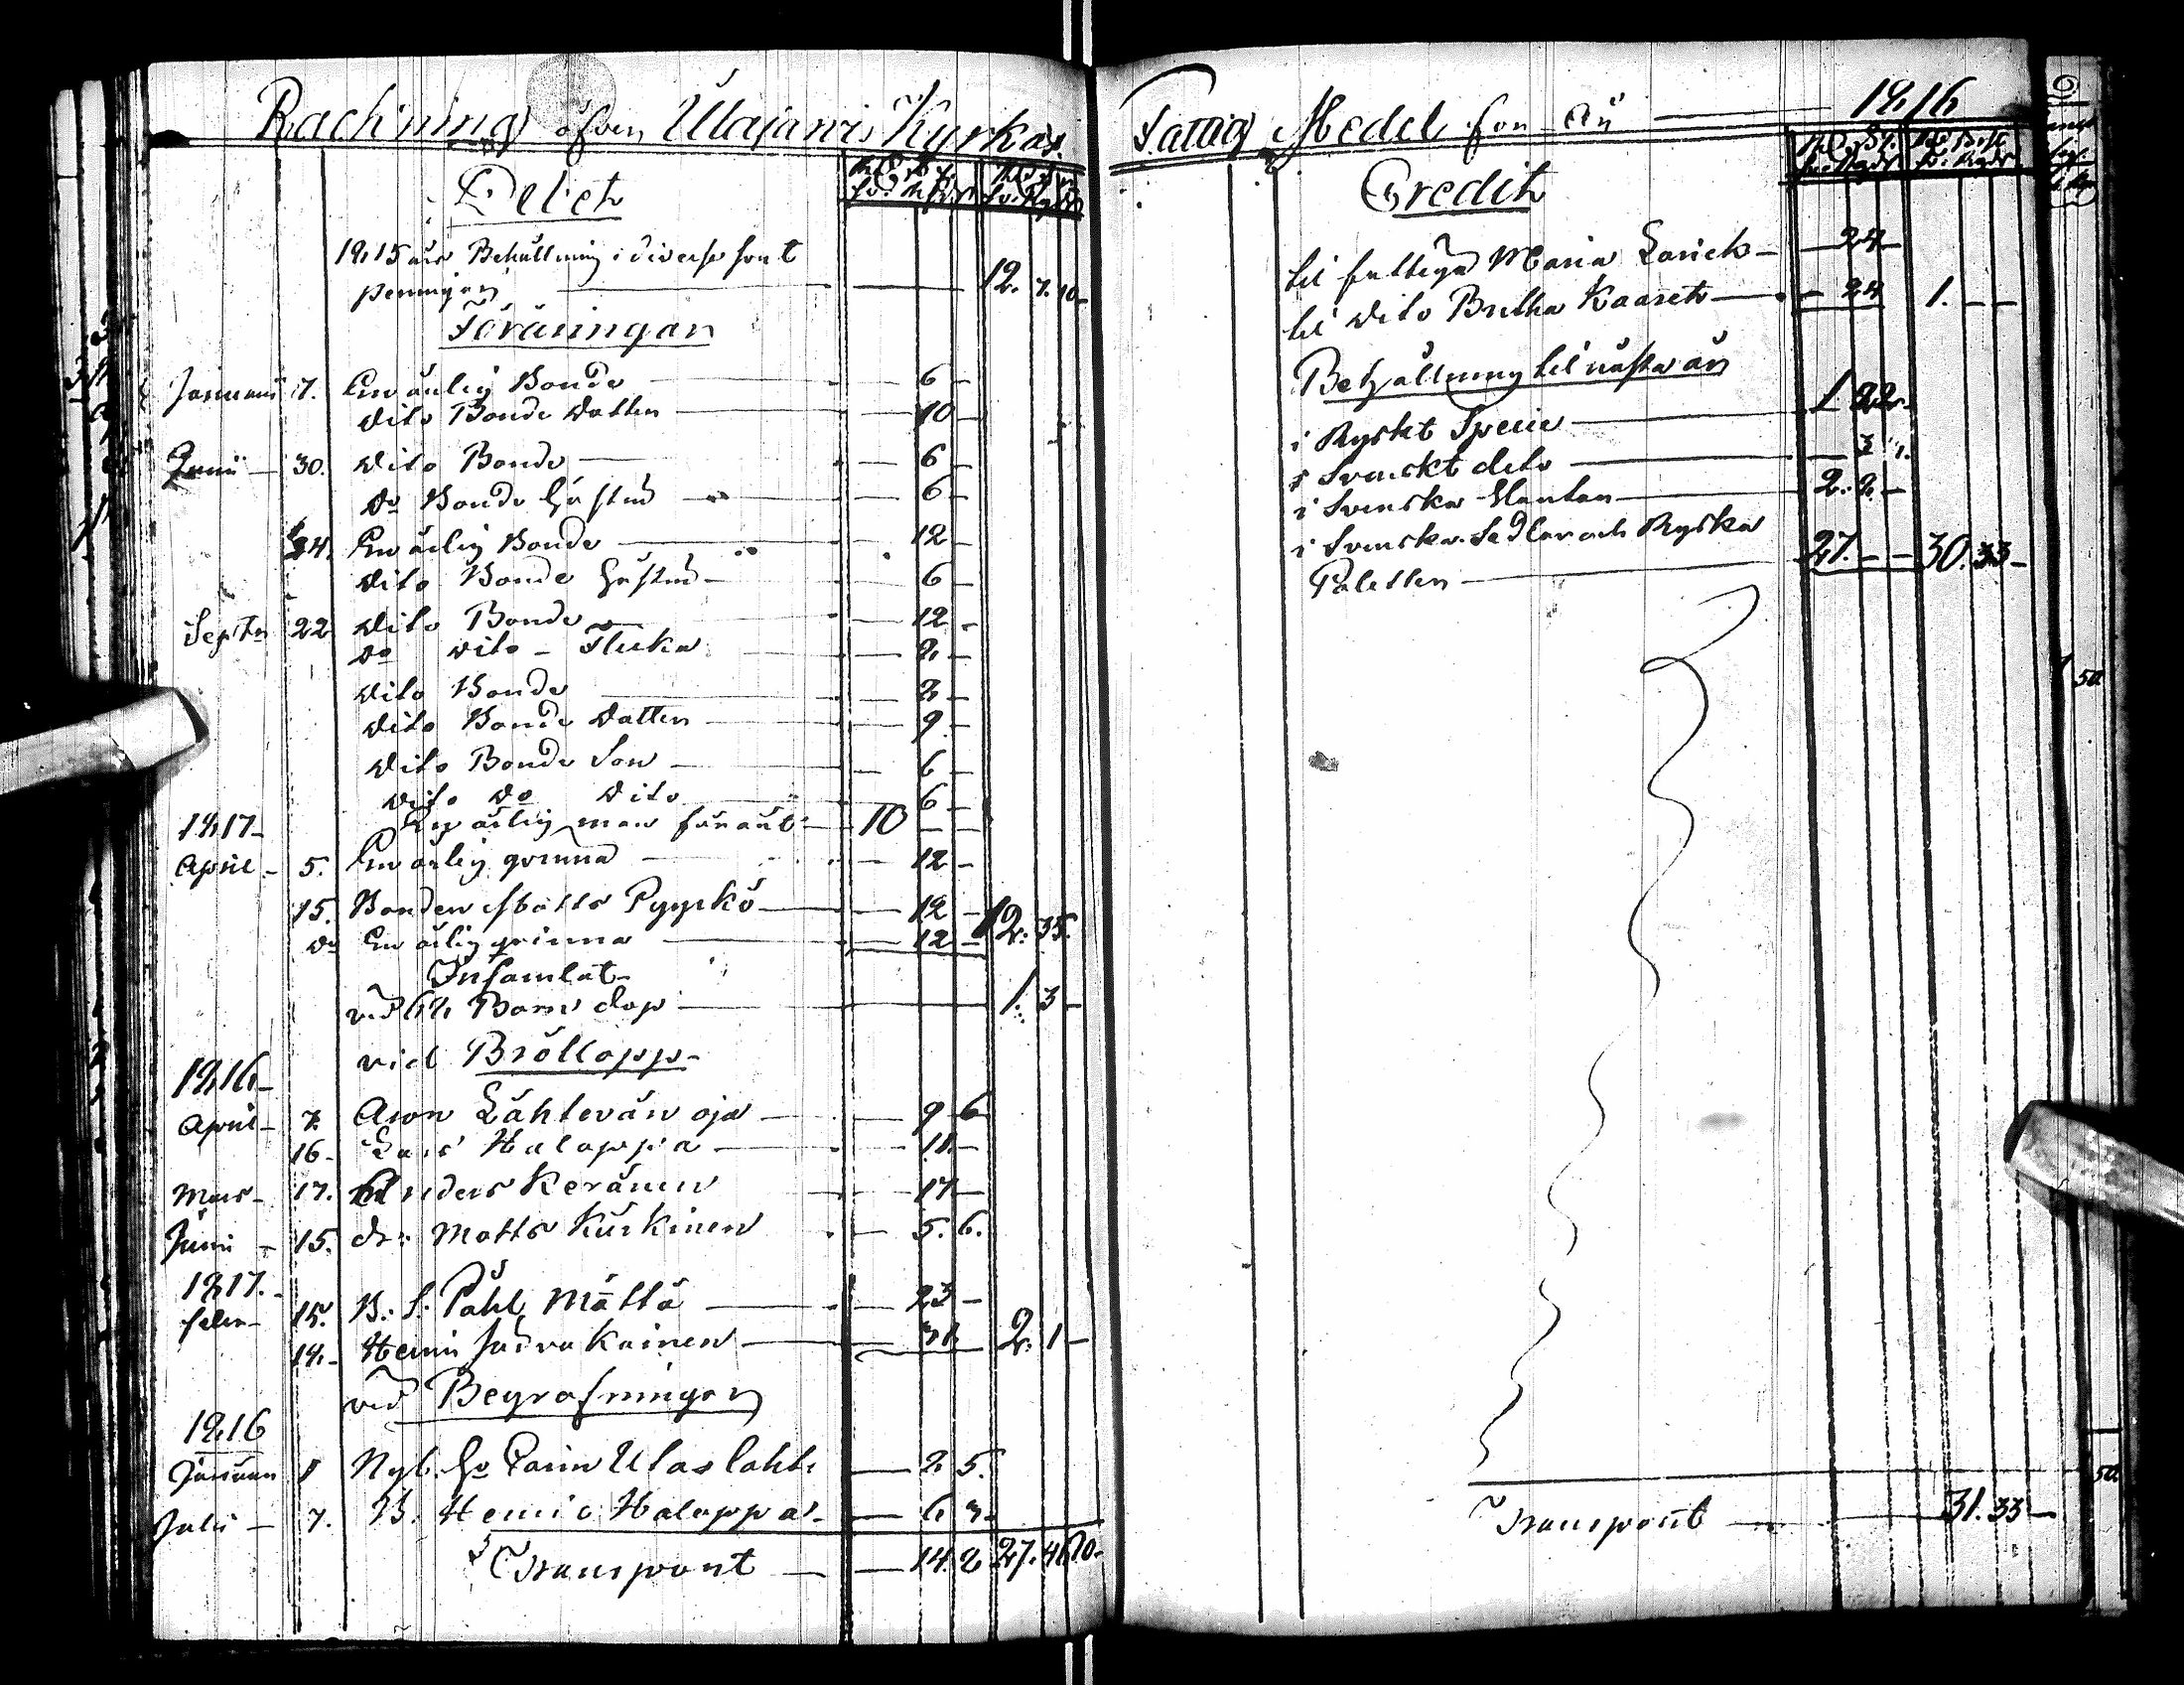 Räckning öfver Ulajärvi Kyrkas
Debet
1815 års Behållning i diverse sort
Penningar 12. 7. 10
Föräringar
Januarii 7. En ärlig Bonde 6
Dito Bonde Dotter 10
Junii 30. Dito Bonde 6
Do Bonde Hustru 6
24. En ärlig Bonde 12
Dito Bonde Hustru 6
Septr 22 Dito Bonde 12
Do Dito Flicka 2
Dito Bonde 2
Dito Bonde Dotter 9
Dito Bonde Son 6
Dito Do Dito 6
1817
En ärlig man förärt 10
April 5. En ärlig qvinna 12
15. Bonden Matts Pyyckö 12
Do En ärlig qvinna 12 12. 35.
Insamlat
vid Barn dop 1. 3
vid Bröllopp
1816
April 7. Aron Lähtevän oja 9 6
16 Lars Haloppa 18
Mars 17. Anders Keränen 17
Junii 15. dr: Matts Kurkinen 5. 6.
1817.
febr 15. B: S: Påhl Mättä 23
18. Henric 31 2. 1
vid Begrafningar
1816
Januari 1 Nyb. Ho Carin Ulaslahti 2 5.
Julii 7. B. Henric Haloppa 6 3
Transport 14. 2 27. 46 10.
Fattig Medel för år 1816
Credit
til fattiga Maria Larich 24
til Dito Britha Kaaret 24 1.
Behållning til nästa år
i Ryskt Specie 1 22.
i Svenskt dito 3
i Svenska Slantar 2. 2.
i Svenska Sedlar och Ryska
Poletter 27. 30. 33
Transport 31. 33